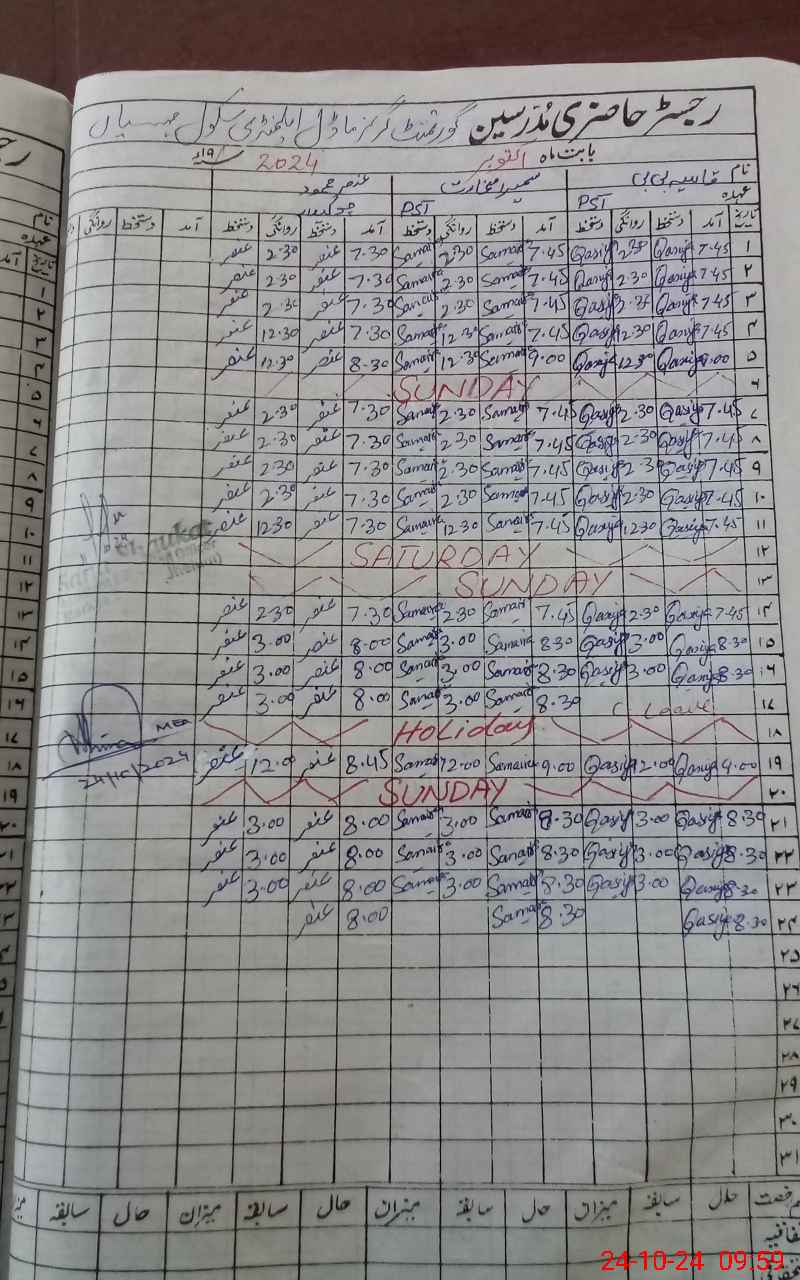 رجسٹر حاضری مُدرسین گورنمنٹ گرلز ماڈل ایلیمنٹری سکول
بابت ماہ اکتوبر 2024 ۱۹ء
نام بی بی عنصر محمود
عہدہ PST PST چوکیدار
تاریخ آمد دستخط روانگی دستخط آمد دستخط روانگی دستخط آمد دستخط روانگی دستخط آمد دستخط روانگی
۱ 7.45 Qasiya 2.30 Qasiya 7.45 Samaira 2.30 Samaira 7.30 عنصر 2.30 عنصر
۲ 7.45 Qasiya 2.30 Qasiya 7.45 Samaira 2.30 Samaira 7.30 عنصر 2.30 عنصر
۳ 7.45 Qasiya 2.30 Qasiya 7.45 Samaira 2.30 Samaira 7.30 عنصر 2.30 عنصر
۴ 7.45 Qasiya 12.30 Qasiya 7.45 Samaira 12.30 Samaira 7.30 عنصر 12.30 عنصر
۵ 9.00 Qasiya 12.30 Qasiya 9.00 Samaira 12.30 Samaira 8.30 عنصر 12.30 عنصر
۶ SUNDAY
۷ 7.45 Qasiya 2.30 Qasiya 7.45 Samaira 2.30 Samaira 7.30 عنصر 2.30 عنصر
۸ 7.45 Qasiya 2.30 Qasiya 7.45 Samaira 2.30 Samaira 7.30 عنصر 2.30 عنصر
۹ 7.45 Qasiya 2.30 Qasiya 7.45 Samaira 2.30 Samaira 7.30 عنصر 2.30 عنصر
۱۰ 7.45 Qasiya 2.30 Qasiya 7.45 Samaira 2.30 Samaira 7.30 عنصر 2.30 عنصر
۱۱ 7.45 Qasiya 12.30 Qasiya 7.45 Samaira 12.30 Samaira 7.30 عنصر 12.30 عنصر
۱۲ SATURDAY
۱۳ SUNDAY
۱۴ 7.45 Qasiya 2.30 Qasiya 7.45 Samaira 2.30 Samaira 7.30 عنصر 2.30 عنصر
۱۵ 8.30 Qasiya 3.00 Qasiya 8.30 Samaira 3.00 Samaira 8.00 عنصر 3.00 عنصر
۱۶ 8.30 Qasiya 3.00 Qasiya 8.30 Samaira 3.00 Samaira 8.00 عنصر 3.00 عنصر
۱۷ C. Leave 8.30 Samaira 3.00 Samaira 8.00 عنصر 3.00 عنصر
۱۸ Holiday
MEA
24/10/2024
۱۹ 9.00 Qasiya 12.00 Qasiya 9.00 Samaira 12.00 Samaira 8.45 عنصر 12.00 عنصر
۲۰ SUNDAY
۲۱ 8.30 Qasiya 3.00 Qasiya 8.30 Samaira 3.00 Samaira 8.00 عنصر 3.00 عنصر
۲۲ 8.30 Qasiya 3.00 Qasiya 8.30 Samaira 3.00 Samaira 8.00 عنصر 3.00 عنصر
۲۳ 8.30 Qasiya 3.00 Qasiya 8.30 Samaira 3.00 Samaira 8.00 عنصر 3.00 عنصر
۲۴ 8.30 Qasiya 8.30 Samaira 8.00 عنصر
۲۵
۲۶
۲۷
۲۸
۲۹
۳۰
۳۱
حال سابقہ میزان حال سابقہ میزان حال سابقہ میزان حال سابقہ
24-10-24 09:59